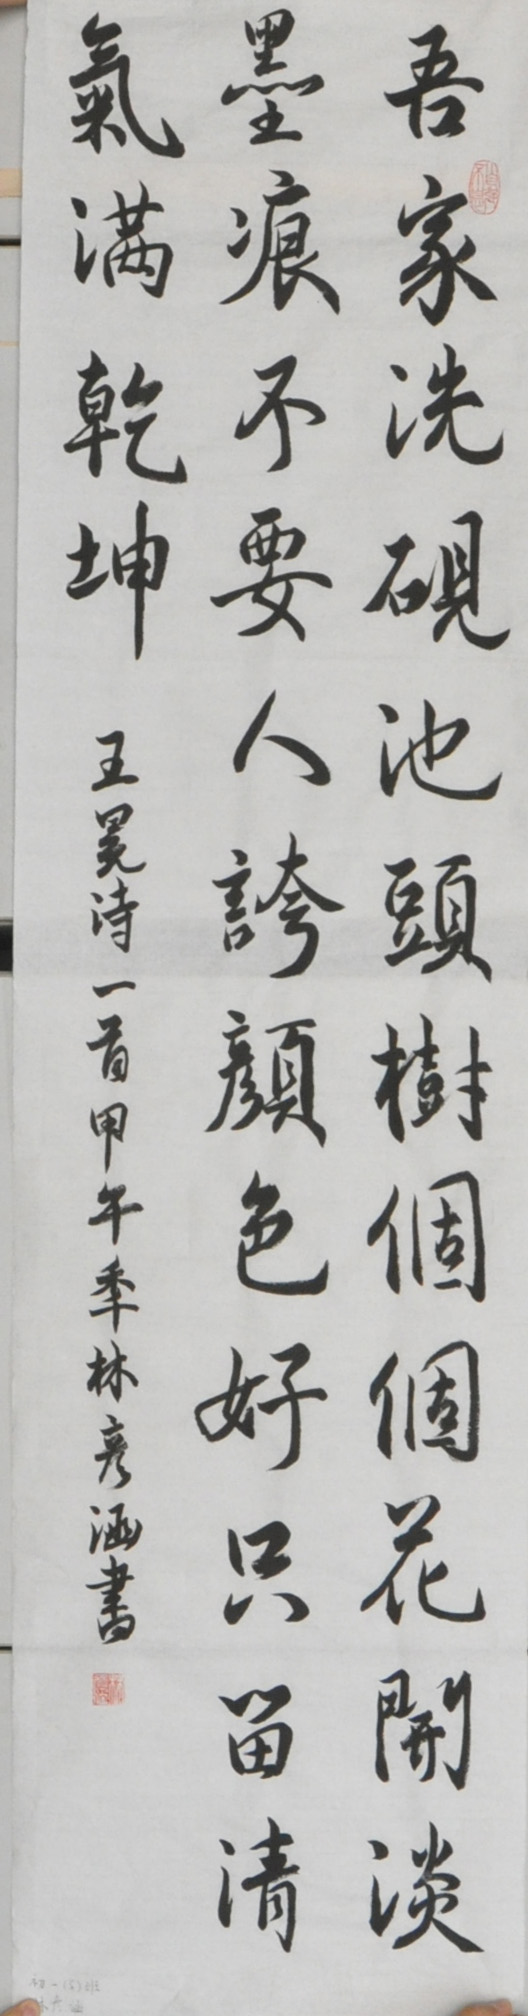 吾家洗硯池頭樹個個花開淡
墨痕不要人誇顏色好只留清
氣满乾坤
王冕诗一首甲午季林彦涵書